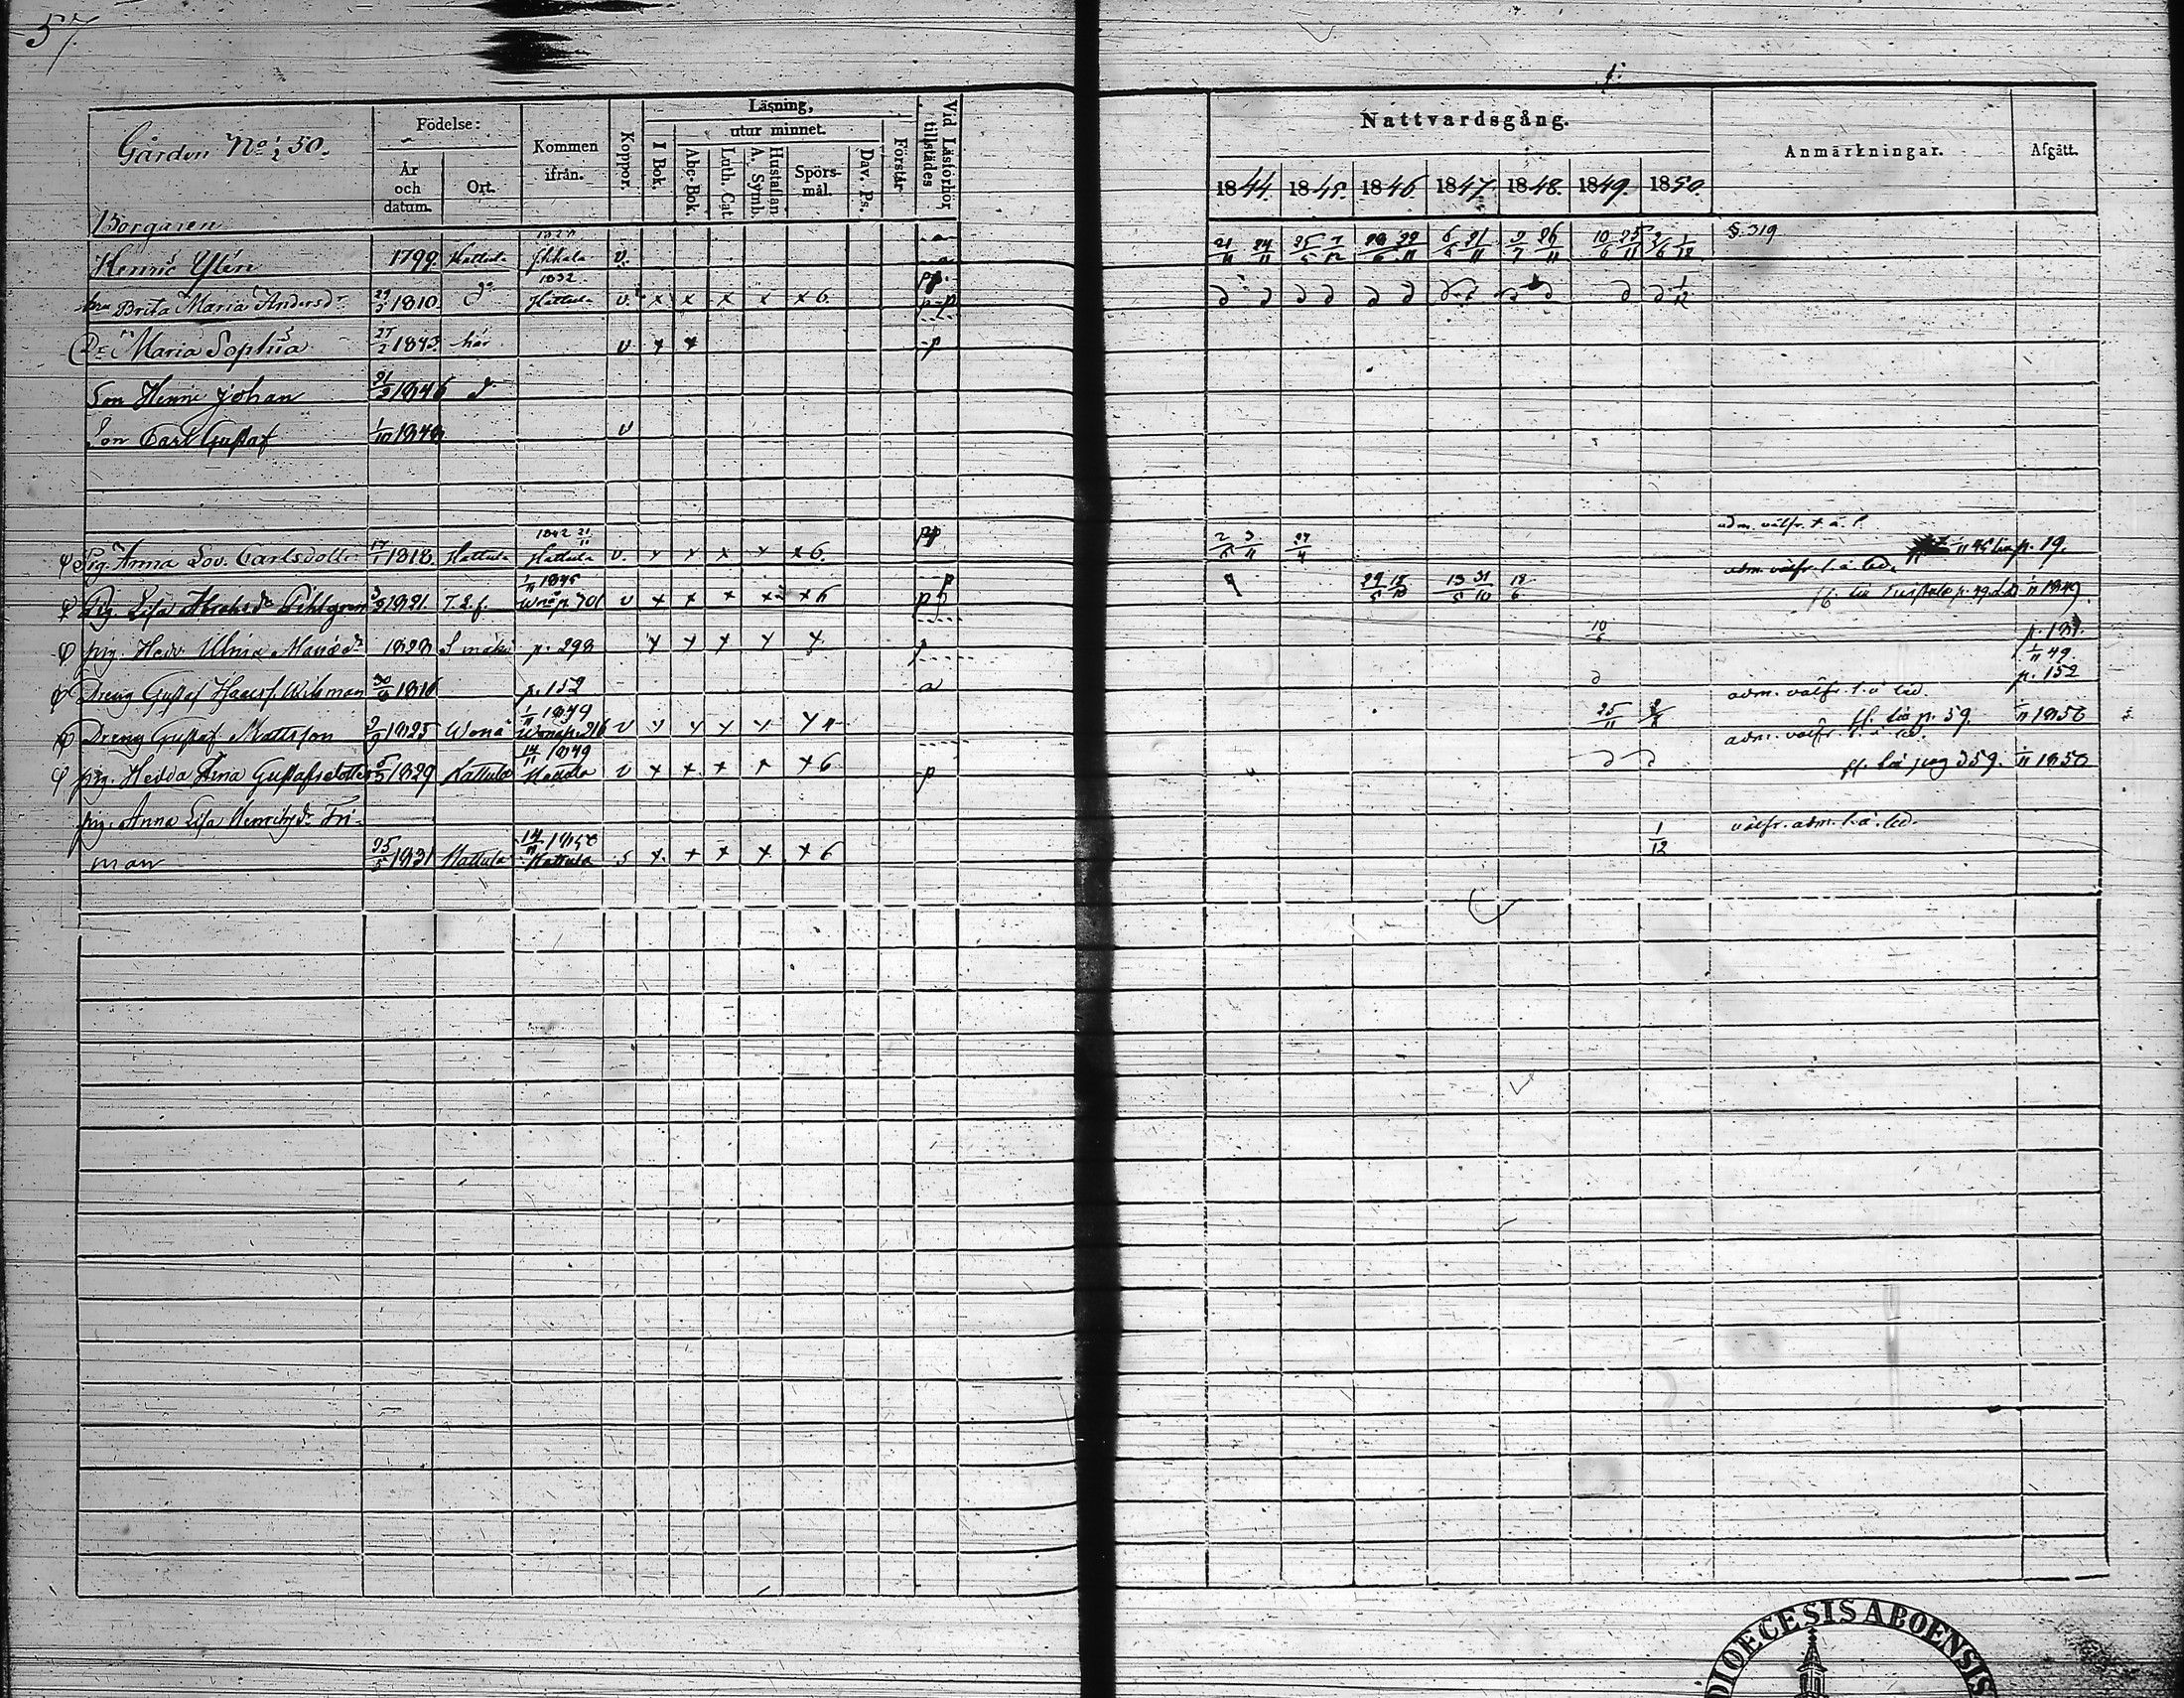 57
Gården No ½ 50.
Födelse:
År och datum.
Ort.
Kommen ifrån.
Koppor.
Läsning,
I Bok.
utur minnet.
Abc-Bok.
Luth. Cat.
Hustaflan A. Symb.
Spörs-mål.
Dav. Ps.
Förstår
Vid Läsförhör tillstädes
Nattvardsgång.
1844. 1845. 1846 1847. 1848. 1849. 1850.
Anmärkningar.
Afgått.
Borgaren
Henric Ylén 1799 Hattula v. 21/4 24/11 25/5 7/12 6/6 21/11 2/7 26/11 10/6 25/11 2/6 1/12 §. 319
1832.
Brita Maria Andersdr 1810. do Hattula v. x x x x x 6. p p 1/12
Maria Sophia 27/2 1843 här v x x p
Son Henric Johan 21/2 1846 d
Son Carl Gustaf 1/10 1848 v
1842 21/11 adm. välfr.
Pig. Anna Lov. Carlsdotter 17/1 1818. Hattula Hattula v. x x x x x 6. 2/6 3/11 27/4 p. 19.
1/11 1845 adm. välfr. l. ä. led.
Pig. Lisa 1821. T.E.f. Wånå p. 701 v x x x x x 6 p 24/5 18/10 13/5 31/10 18/6 1/11 1849.
pig. Hedv. Ulrica 1828 p. 298 x x x x x p 10/6 p. 131.
1/11 49.
Dreng Gustaf Wikman 30/8 1816 p. 152 a p. 152
1/11 1849 adm. välfr. l. ä. led.
Dreng Gustaf Mattsson 1825 Wånå Wånå p. 216 v x x x x x 25/11 fl. till p. 59. 1/11 1850
14/11 1849 adm. välfr. l. ä. led.
pig. Hedda Stina Gustafsdotter 1829 Hattula Hattula v x x x x x 6 p fl. till pag 359. 1/11 1850
pig. Anna Lisa Henricsdr Fri- välfr. adm. l. ä. led.
man 25/5 1831 Hattula 14/11 1850 Hattula s x x x x x 6 1/12
DIOECESIS ABOENSIS